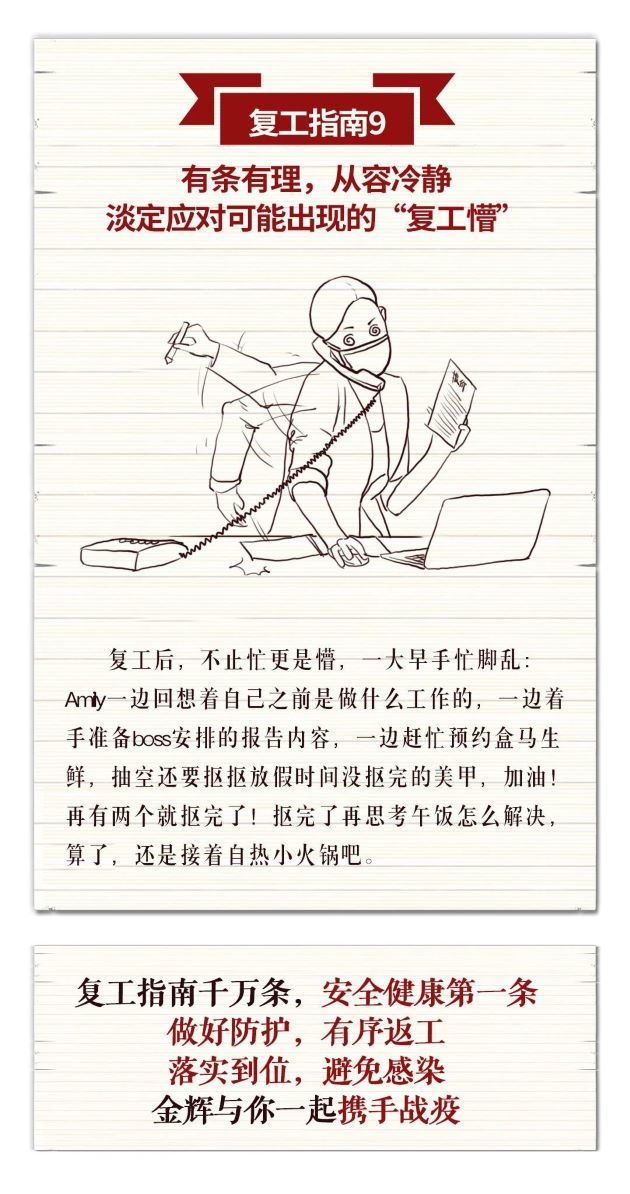 复工指南9
有条有理，从容冷静
淡定应对可能出现的“复工懵”
复工后，不止忙更是懵，一大早手忙脚乱：
Amily一边回想着自己之前是做什么工作的，一边着
手准备boss安排的报告内容，一边赶忙预约盒马生
鲜，抽空还要抠抠放假时间没抠完的美甲，加油！
再有两个就抠完了！抠完了再思考午饭怎么解决，
算了，还是接着自热小火锅吧。
复工指南千万条，安全健康第一条
做好防护，有序返工
落实到位，避免感染
金辉与你一起携手战疫